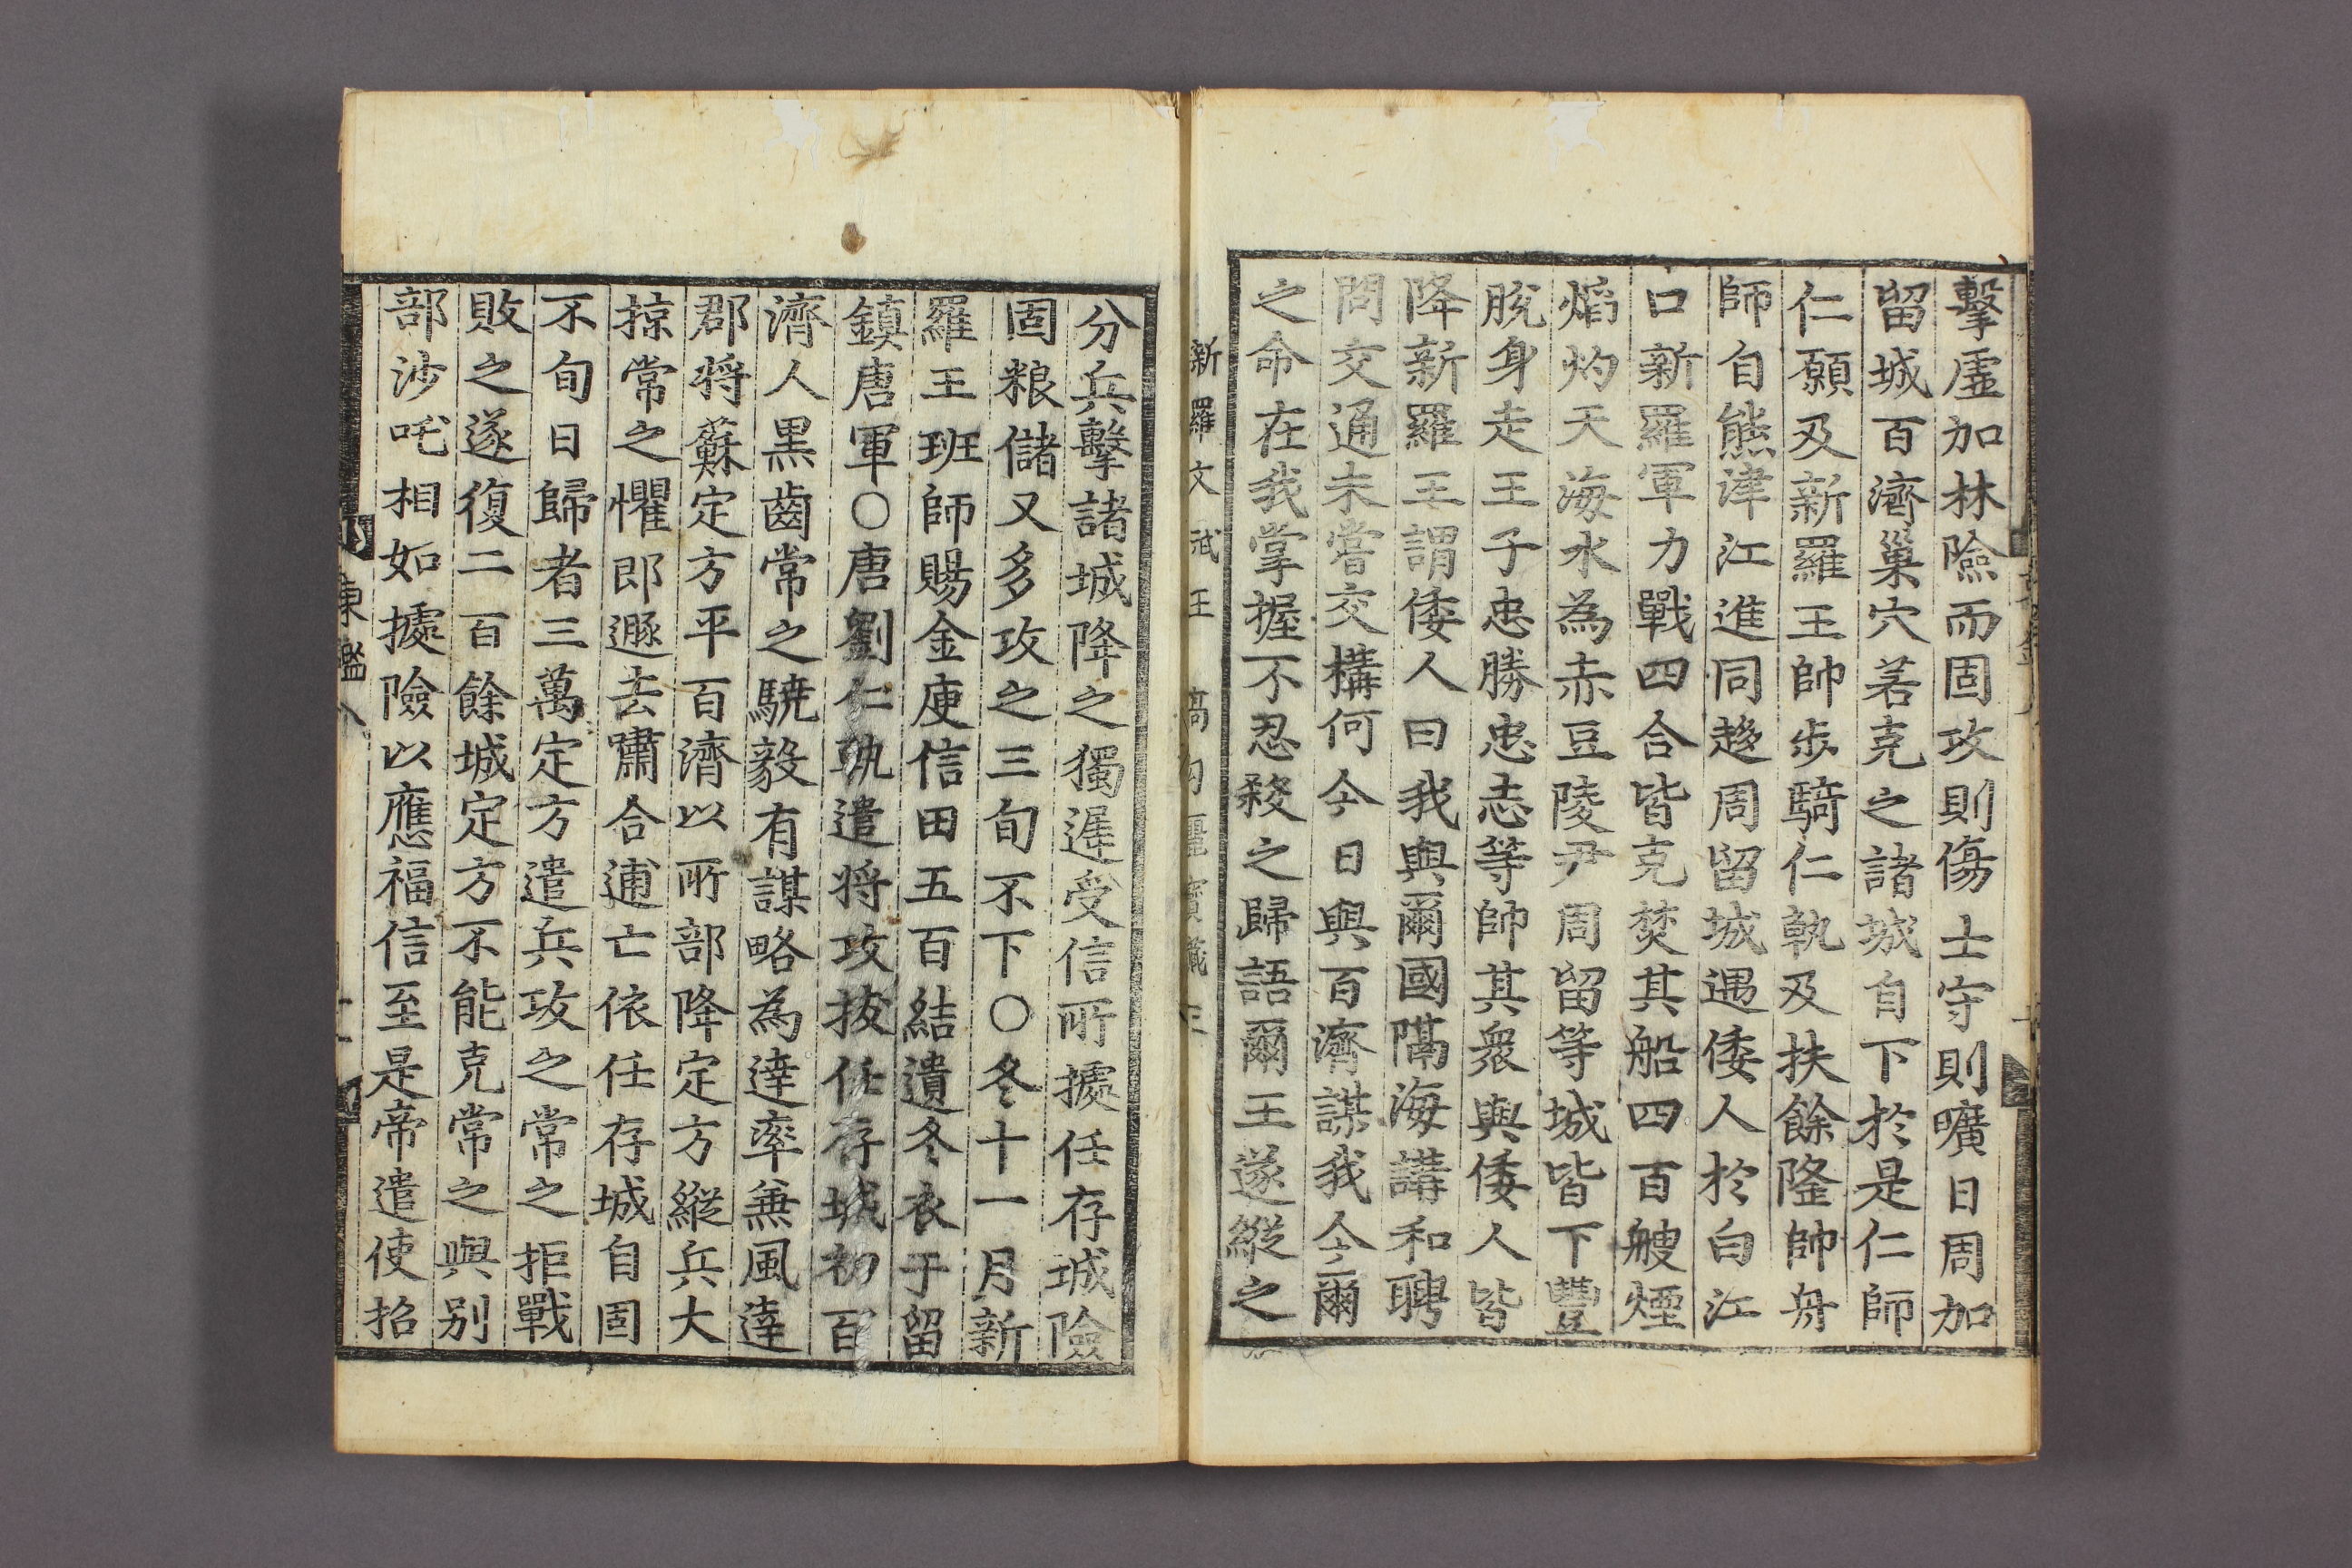 擊虛加林險而固攻則傷士守則曠日周加
留城百濟巢穴若克之諸城自下於是仁師
仁願及新羅王帥步騎仁軌及扶餘隆帥舟
師自熊津江進同趍周留城遇倭人於白江
口新羅軍力戰四合皆克焚其船四百艘煙
焰灼天海水為赤豆陵尹周留等城皆下豐
脫身走王子忠勝忠志等帥其衆與倭人皆
降新羅王謂倭人曰我與爾國隔海講和聘
問交通未嘗交構何今日與百濟謀我今爾
之命在我掌握不忍殺之歸語爾王遂縱之
新羅文武王 高句麗寶藏王
分兵擊諸城降之獨遲受信所據任存城險
固粮儲又多攻之三旬不下○冬十一月新
羅王班師賜金庾信田五百結遺冬衣于留
鎮唐軍○唐劉仁軌遣將攻拔任存城初百
濟人黑齒常之驍毅有謀略為達率兼風達
郡將蘇定方平百濟以所部降定方縱兵大
掠常之懼郎遯去嘯合逋亡依任存城自固
不旬日歸者三萬定方遣兵攻之常之拒戰
敗之遂復二百餘城定方不能克常之與別
部沙吒相如據險以應福信至是帝遣使招
東鑑八